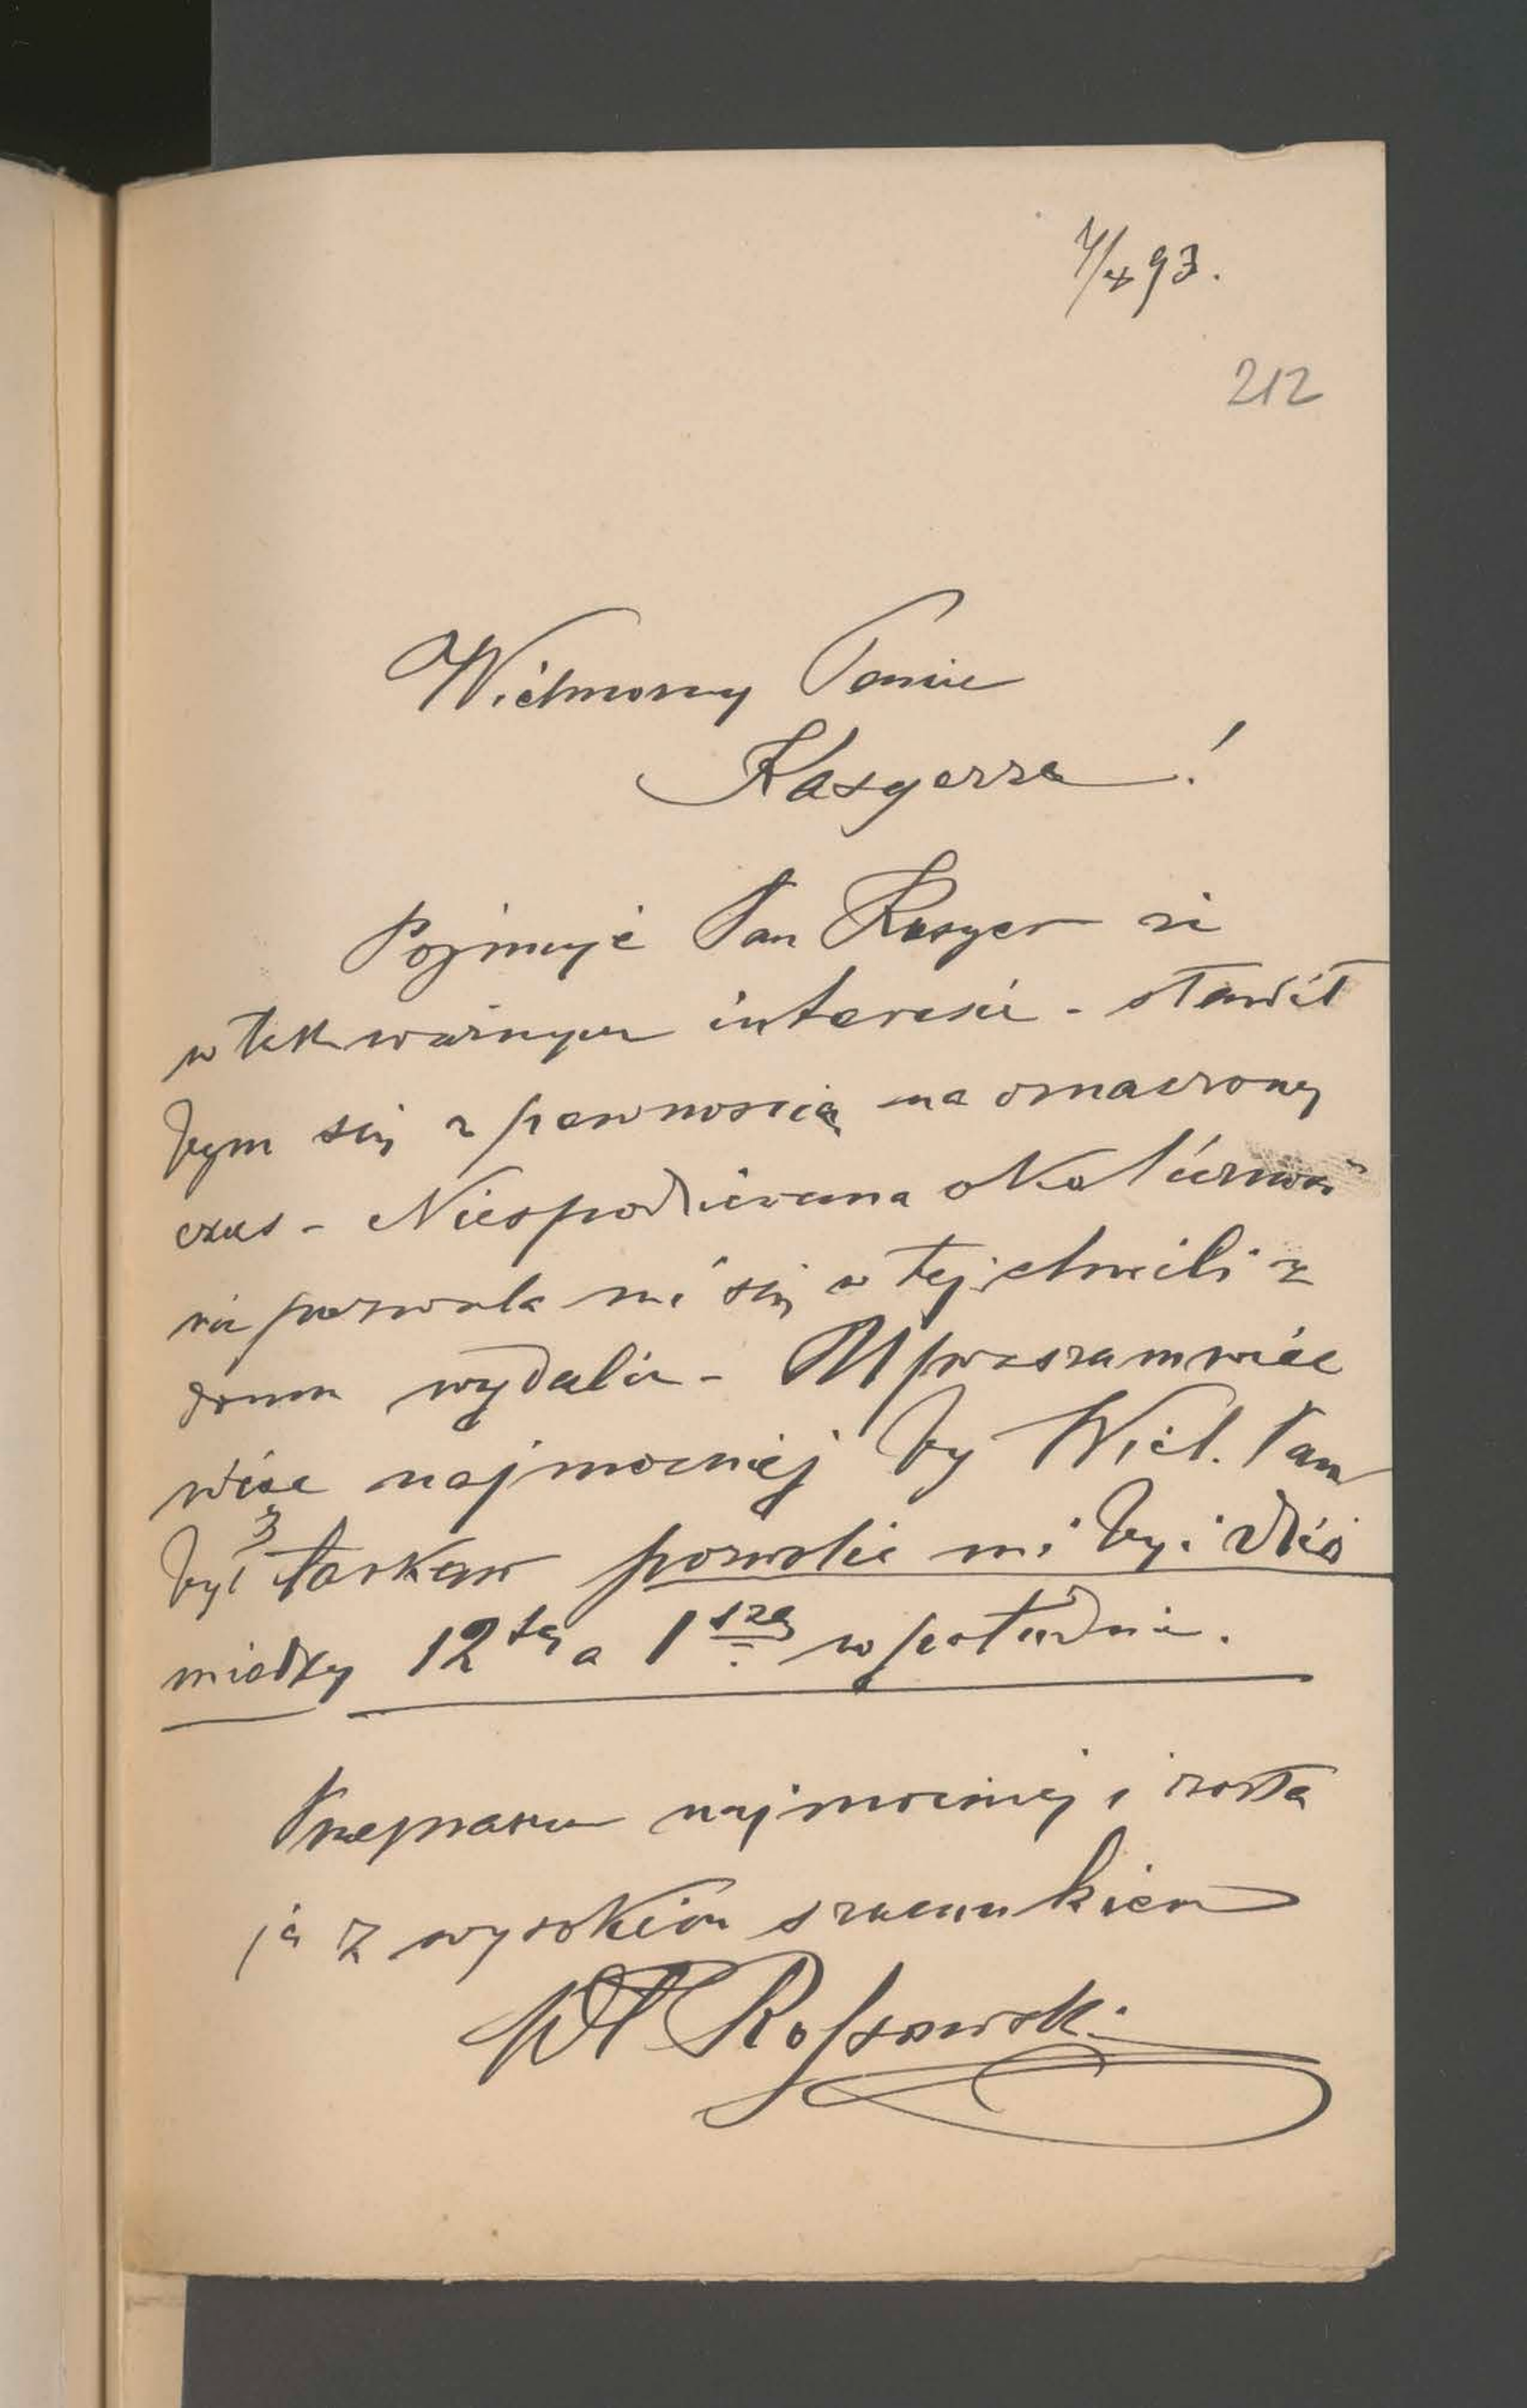 4/x 93.
212
Wielmożny Panie
Kasyerze!
Pojmuje Pan Kasyer że
w tak ważnym interesie - stawił
bym się z pewnością na oznaczony
czas - Niespodziewana okoliczność
nie pozwala mi się w tej chwili z
domu wydalić - Upraszam więc
więc najmocniej by Wiel. Pan
był łaskaw pozwolić mi być dziś
między 12tą a 1szą w południe.
Przepraszam najmocniej i zosta
ję z wysokiem szacunkiem
Wł Rossowski